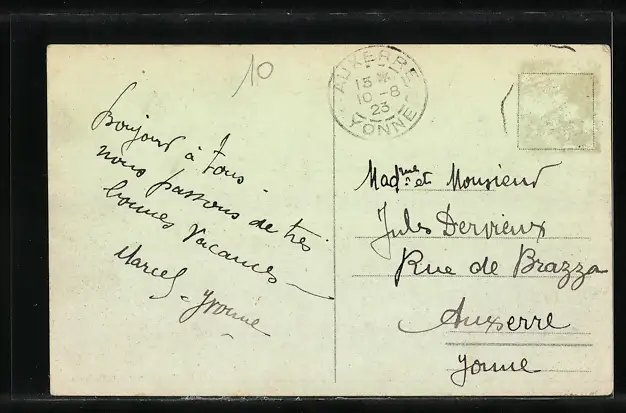 10
AUXERRE
13 * 
10 - 8
23
YONNE
Bonjour à tous -
nous passons de très
bonnes vacances -
Marcel - Yvonne
Madme et Monsieur
Jules Dervieux
Rue de Brazza
Auxerre
Yonne